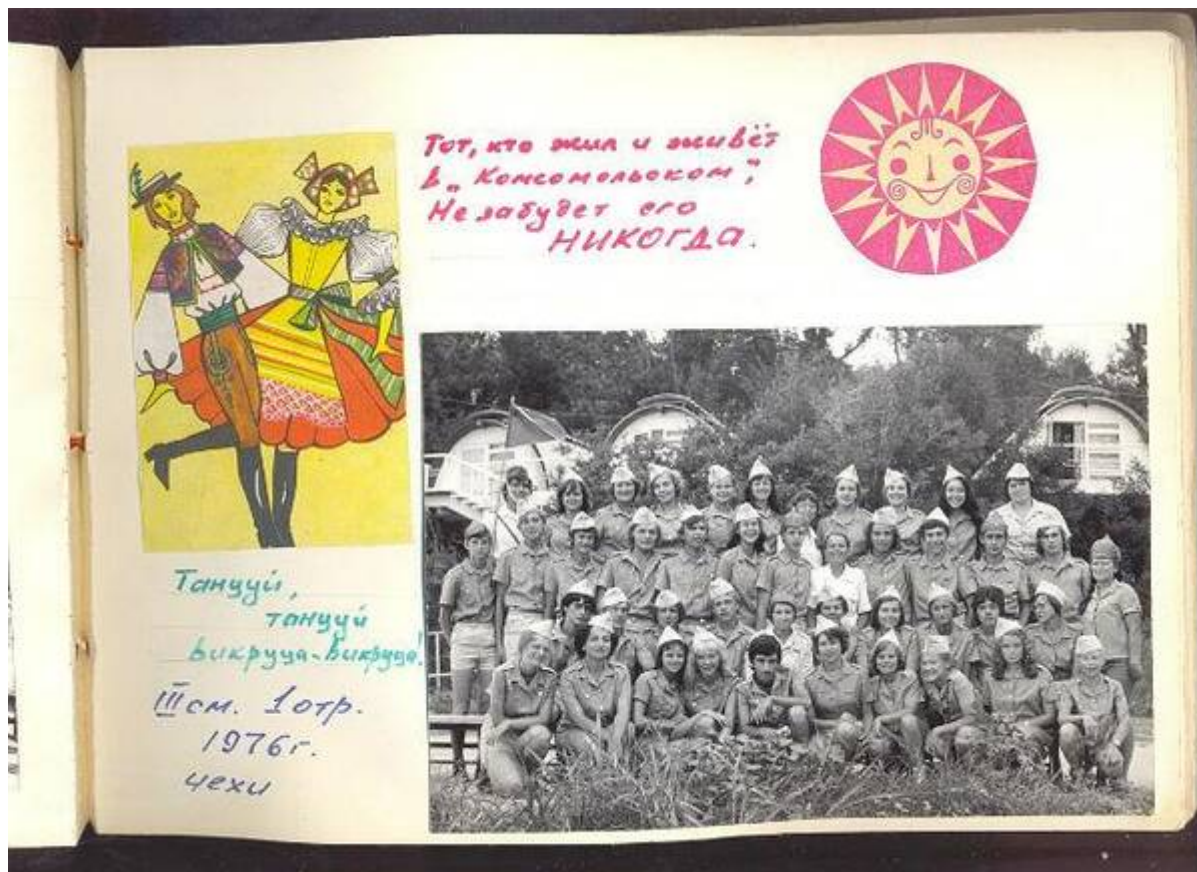 Тот, кто жил и живёт
в „Комсомольском“,
Не забудет его
НИКОГДА.
Танцуй,
танцуй
викруца-викруца!
III см. 1 отр.
1976г.
чехи